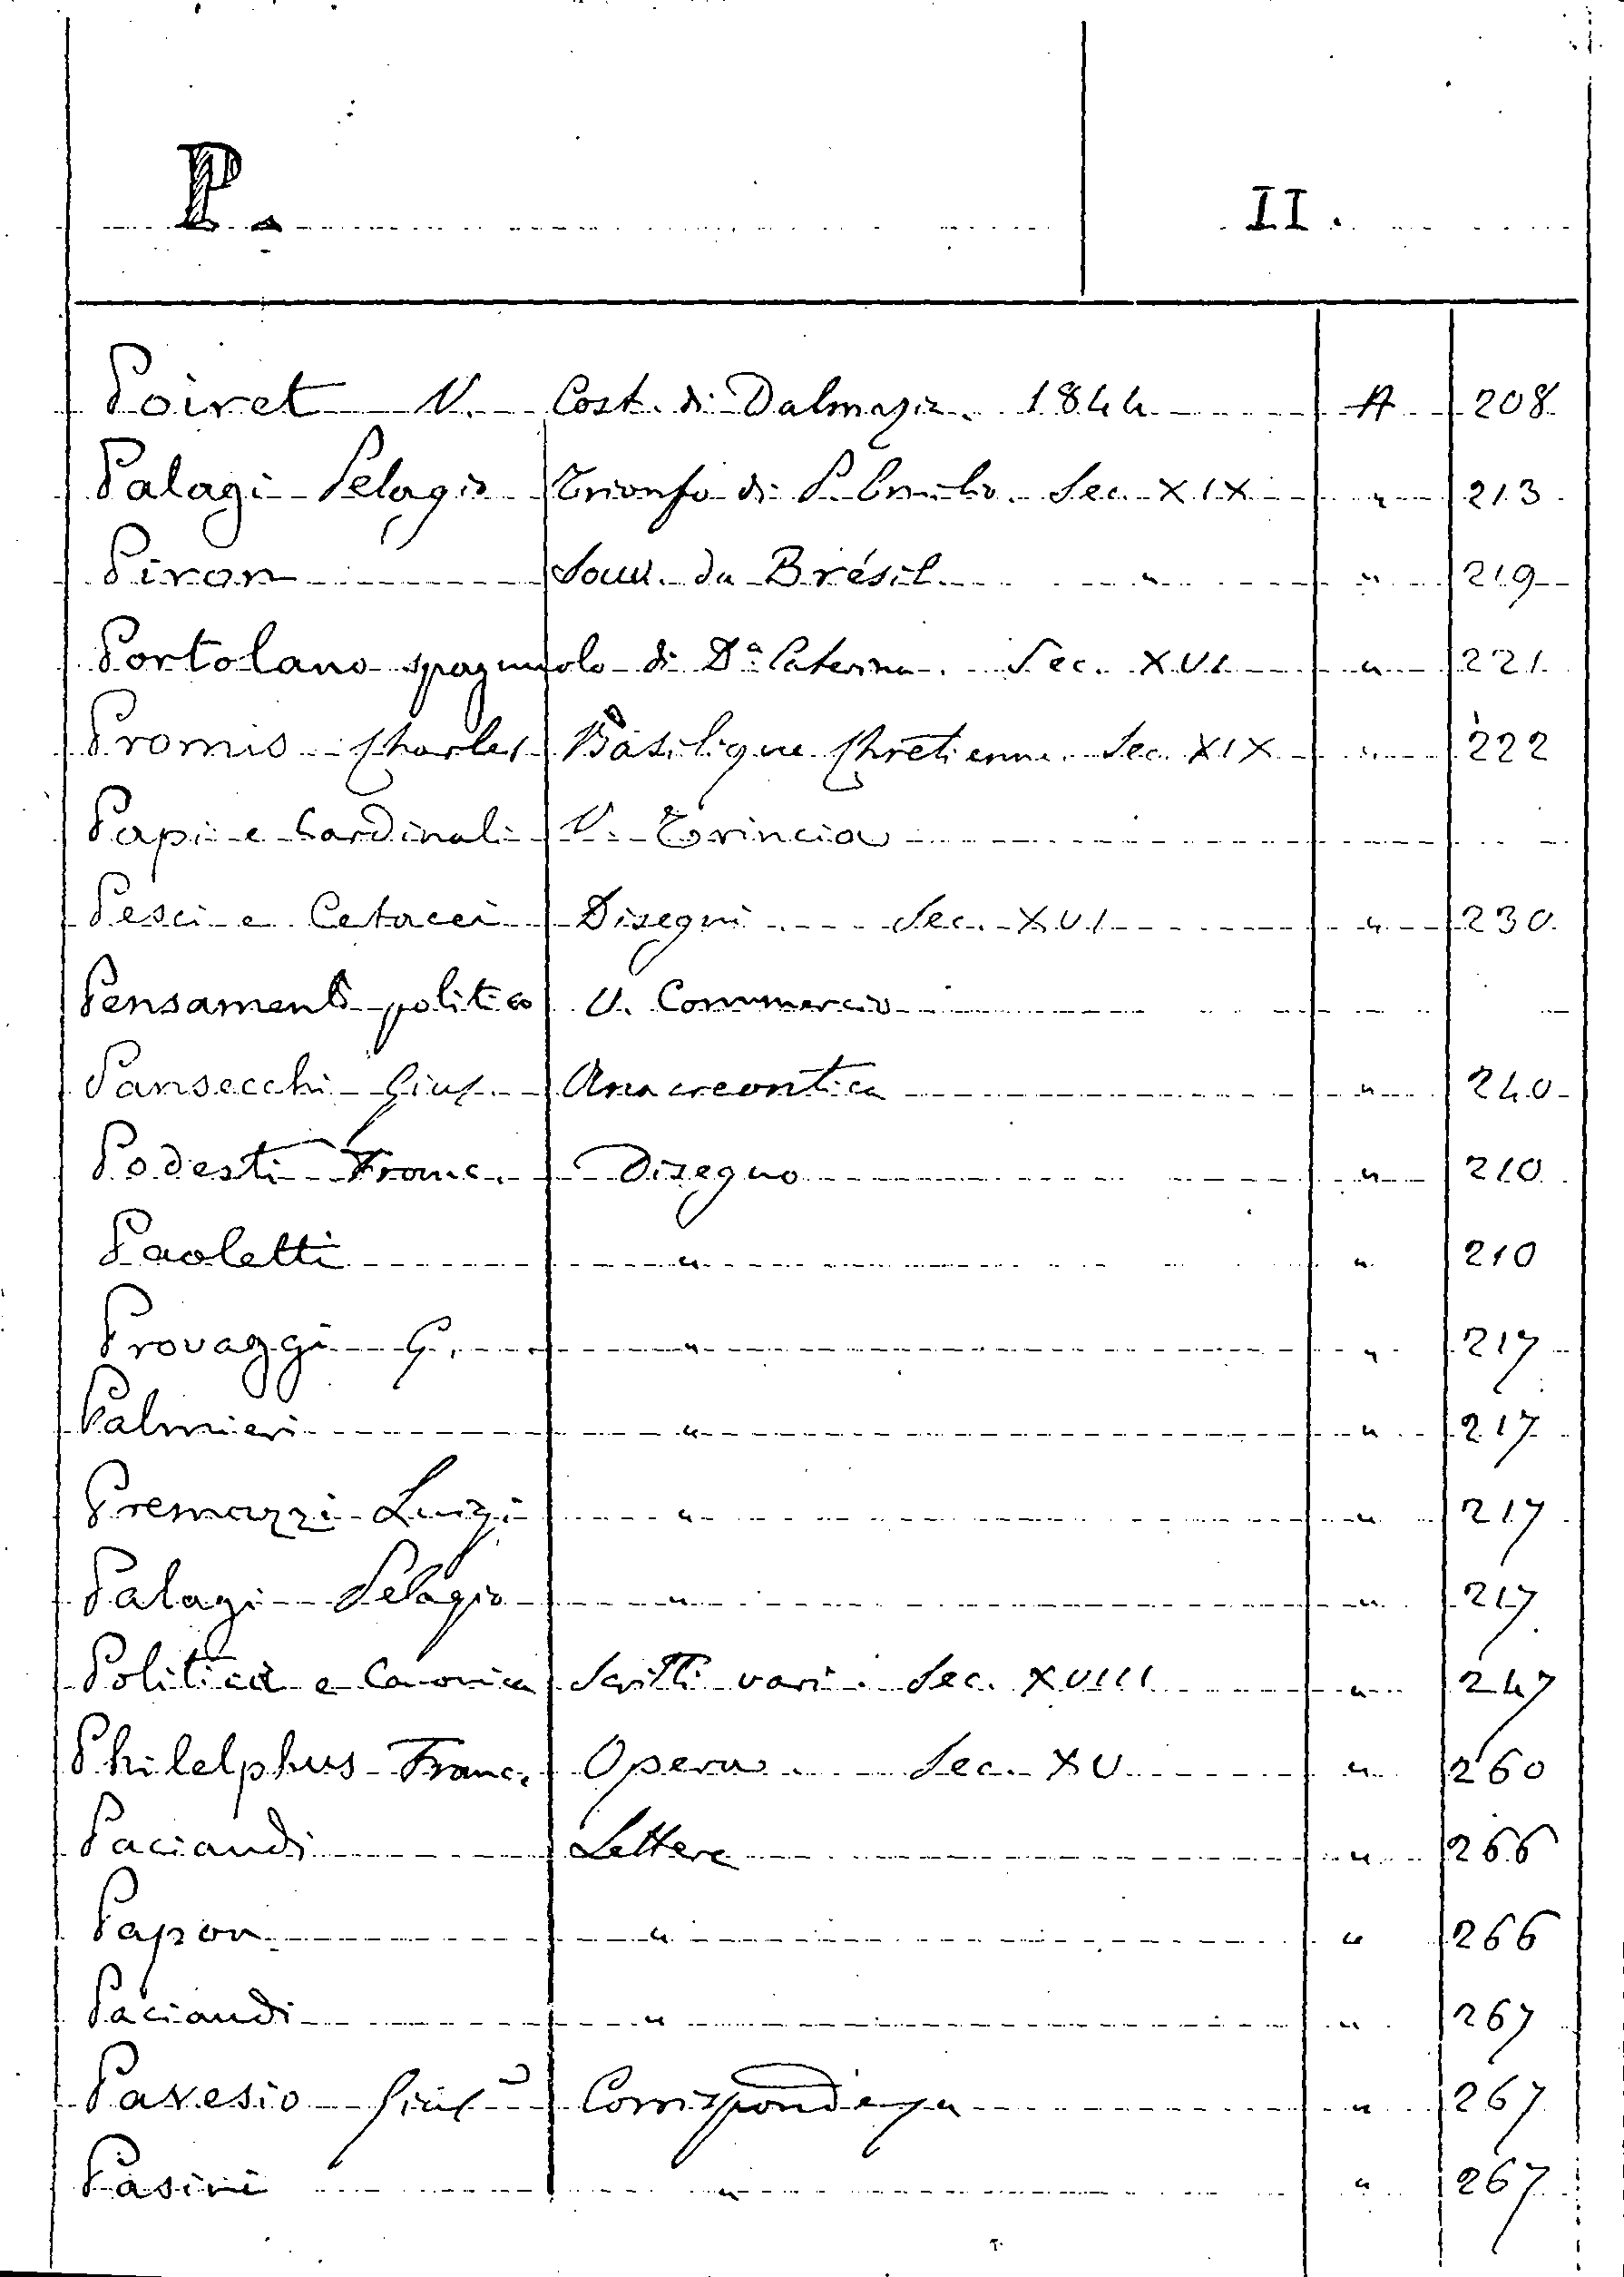 P. II.
Poiret N. Cost. di Dalmazia. 1844 A 208
Palagi Pelagio Trionfo di P. Emilio. Sec. XIX " 213
Piron Souv. du Brésil " " 219
Portolano spagnuolo di Dª Caterina. Sec. XVI " 221
Promis Charles Basilique Chrétienne. Sec. XIX " 222
Papi e Cardinali V. Trincia
Pesci e Cetacei Disegni Sec. XVI " 230
Pensamento politico V. Commercio
Pansecchi Gius. Anacreontica " 240
Podesti Franc. Disegno " 210
Paoletti " " 210
Provaggi G. " " 217
Palmieri " " 217
Premazzi Luigi " " 217
Palagi Pelagio " " 217
Politica e Canonica Scritti vari. Sec. XVIII " 247
Philelphus Franc. Opera. Sec. XV " 260
Paciaudi Lettere " 266
Papon " " 266
Paciaudi " " 267
Pavesio Gius. Corrispondenza " 267
Pasini " " 267